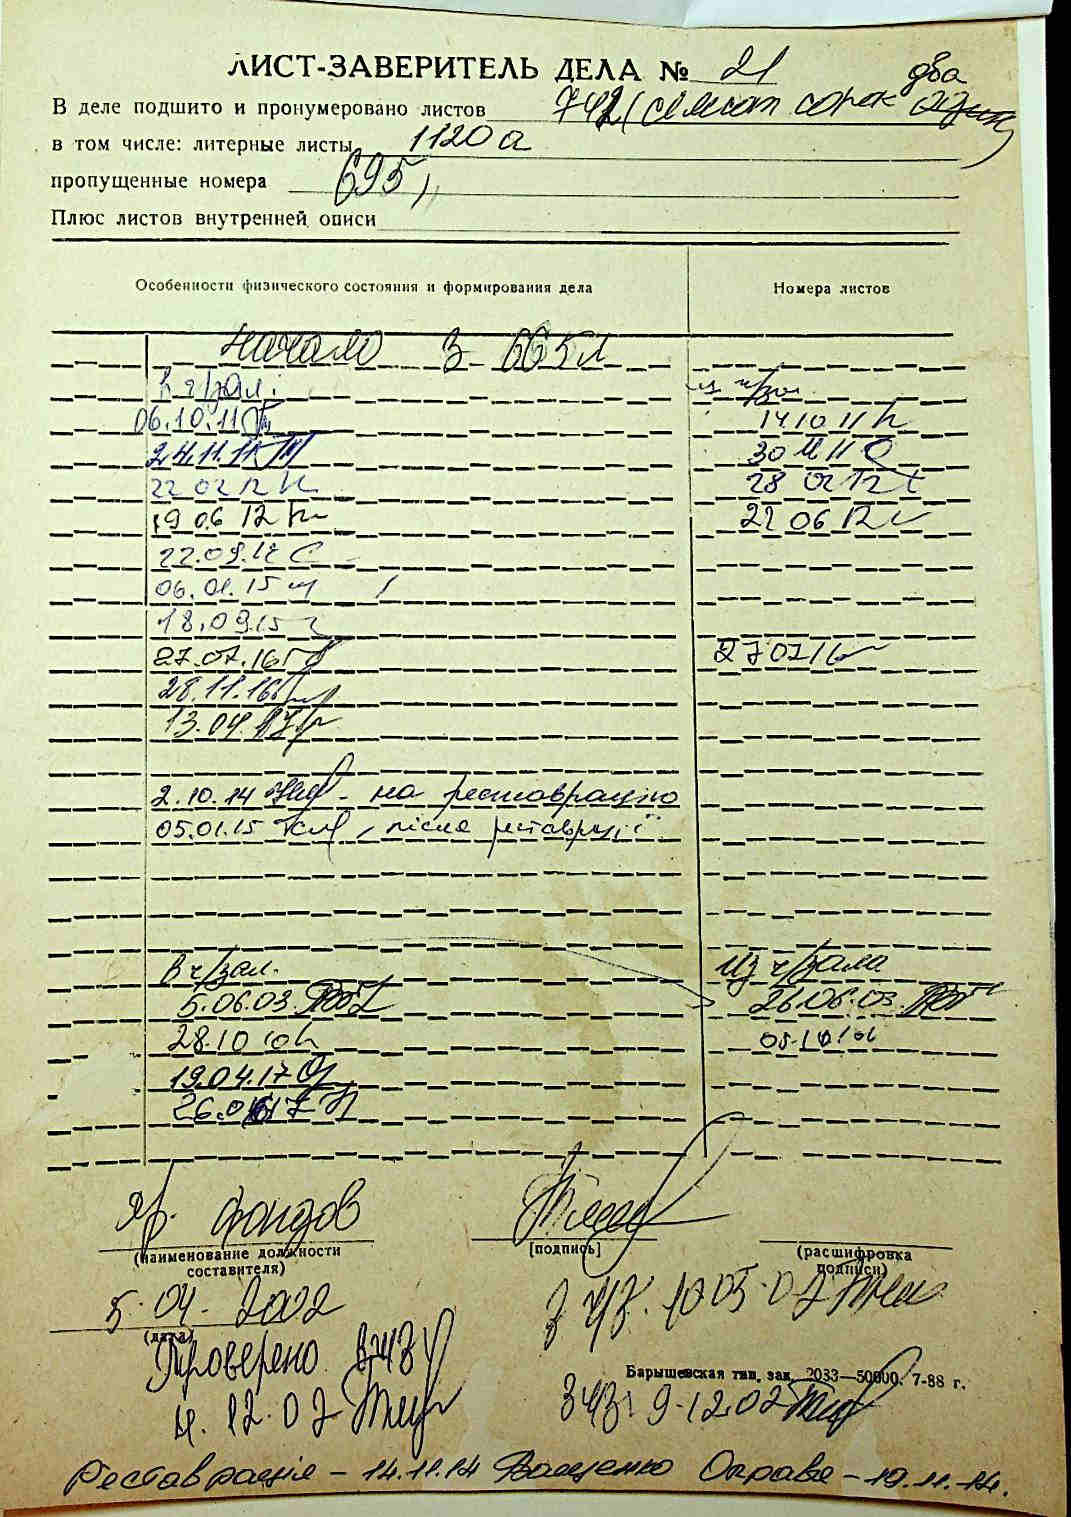 ЛИСТ-ЗАВЕРИТЕЛЬ ДЕЛА № 21
два
В деле подшито и пронумеровано листов 742 (семьсот сорок один)
в том числе: литерные листы 1120а
пропущенные номера 695,
Плюс листов внутренней описи
Особенности физического состояния и формирования дела
Номера листов
Начало з 665 л
в ч/зал. из ч/зал
06.10.11 14.10 11
24.11.11 30 11 11
22 02 12 28 02 12
19 06 12 22 06 12
22.09.12
06.01.15
18.09.15
27.07.16 27 07 16
28.11.16
13.04.17
2.10.14 - на реставрацию
05.01.15 , після реставрації
в ч/зал. Из ч/зала
5.06.03. 26.06.03.
28.10 10
19.04.17
26.06 17
фондов
(наименование должности составителя)
[подпись]
(расшифровка подписи)
5.04.2002
10 05.07
(дата)
Проверено
12.07
Барышевская тип. зак. 2033—50000. 7-88 г.
9.12.02
Реставрація – 14.11.14 Ващенко Оправа – 19.11.14.